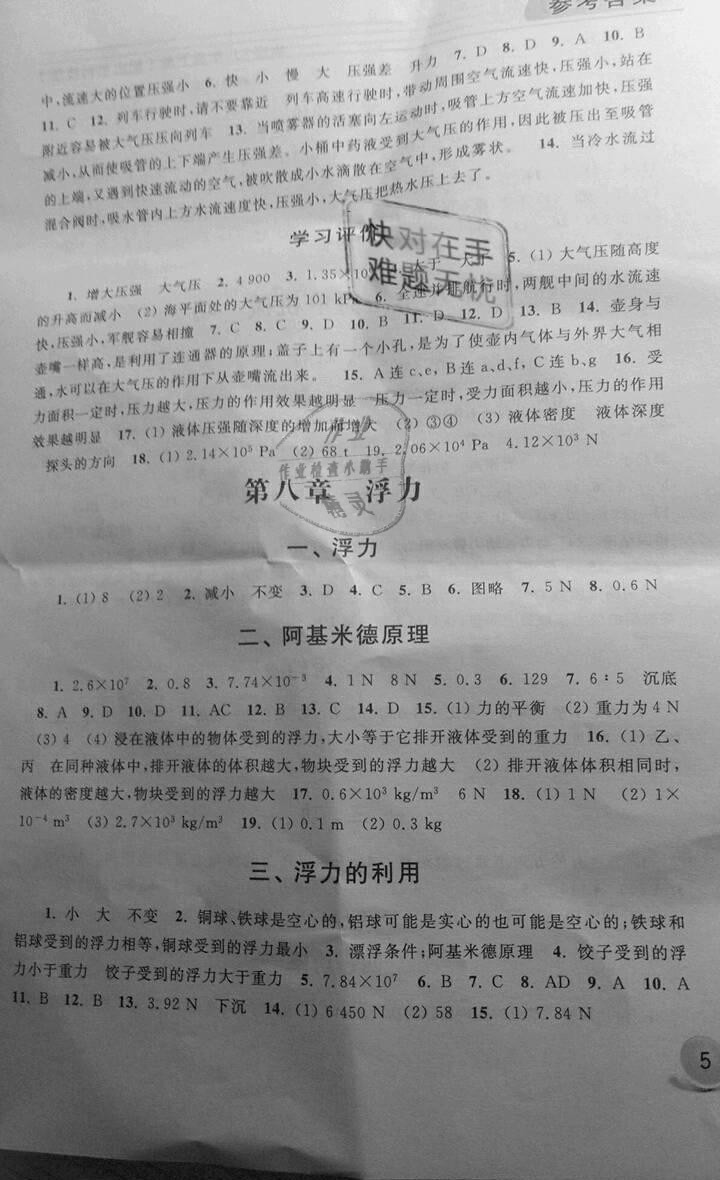 参考答案
中,流速大的位置压强小 6. 快 小 慢 大 压强差 升力 7. D 8. D 9. A 10. B
11. C 12. 列车行驶时,请不要靠近 列车高速行驶时,带动周围空气流速快,压强小,站在
附近容易被大气压压向列车 13. 当喷雾器的活塞向左运动时,吸管上方空气流速加快,压强
减小,从而使吸管的上下端产生压强差。小桶中药液受到大气压的作用,因此被压出至吸管
的上端,又遇到快速流动的空气,被吹散成小水滴散在空气中,形成雾状。 14. 当冷水流过
混合阀时,吸水管内上方水流速度快,压强小,大气压把热水压上去了。
学习评价
快对在手
难题无忧
1. 增大压强 大气压 2. 4 900 3. 1.35×10 大于 大于 5. (1) 大气压随高度
的升高而减小 (2) 海平面处的大气压为 101 kPa 6. 全速并排航行时,两舰中间的水流速
快,压强小,军舰容易相撞 7. C 8. C 9. D 10. B 11. D 12. D 13. B 14. 壶身与
壶嘴一样高,是利用了连通器的原理,盖子上有一个小孔,是为了使壶内气体与外界大气相
通,水可以在大气压的作用下从壶嘴流出来。 15. A 连 c、e, B 连 a、d、f, C 连 b、g 16. 受
力面积一定时,压力越大,压力的作用效果越明显 压力一定时,受力面积越小,压力的作用
效果越明显 17. (1) 液体压强随深度的增加而增大 (2) ③④ (3) 液体密度 液体深度
探头的方向 18. (1) 2.14×10⁵ Pa (2) 68 t 19. 2.06×10⁴ Pa 4.12×10³ N
作业
作业检查小助手
精灵
第八章 浮力
一、浮力
1. (1) 8 (2) 2 2. 减小 不变 3. D 4. C 5. B 6. 图略 7. 5 N 8. 0.6 N
二、阿基米德原理
1. 2.6×10⁷ 2. 0.8 3. 7.74×10⁻³ 4. 1 N 8 N 5. 0.3 6. 129 7. 6∶5 沉底
8. A 9. D 10. D 11. AC 12. B 13. C 14. D 15. (1) 力的平衡 (2) 重力为 4 N
(3) 4 (4) 浸在液体中的物体受到的浮力,大小等于它排开液体受到的重力 16. (1) 乙、
丙 在同种液体中,排开液体的体积越大,物块受到的浮力越大 (2) 排开液体体积相同时,
液体的密度越大,物块受到的浮力越大 17. 0.6×10³ kg/m³ 6 N 18. (1) 1 N (2) 1×
10⁻⁴ m³ (3) 2.7×10³ kg/m³ 19. (1) 0.1 m (2) 0.3 kg
三、浮力的利用
1. 小 大 不变 2. 铜球、铁球是空心的,铝球可能是实心的也可能是空心的;铁球和
铝球受到的浮力相等,铜球受到的浮力最小 3. 漂浮条件;阿基米德原理 4. 饺子受到的浮
力小于重力 饺子受到的浮力大于重力 5. 7.84×10⁷ 6. B 7. C 8. AD 9. A 10. A
11. B 12. B 13. 3.92 N 下沉 14. (1) 6 450 N (2) 58 15. (1) 7.84 N
5